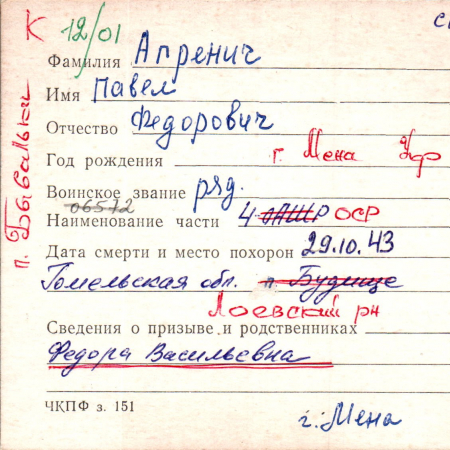 К 12/01
Фамилия Апренич
Имя Павел
Отчество Федорович
Год рождения г. Мена
Воинское звание ряд.
06572
Наименование части 4 ОАШР ОСР
Дата смерти и место похорон 29.10.43
Гомельская обл. п. Будище
Лоевский рн
Сведения о призыве и родственниках
Федора Васильевна
ЧКПФ з. 151
г. Мена